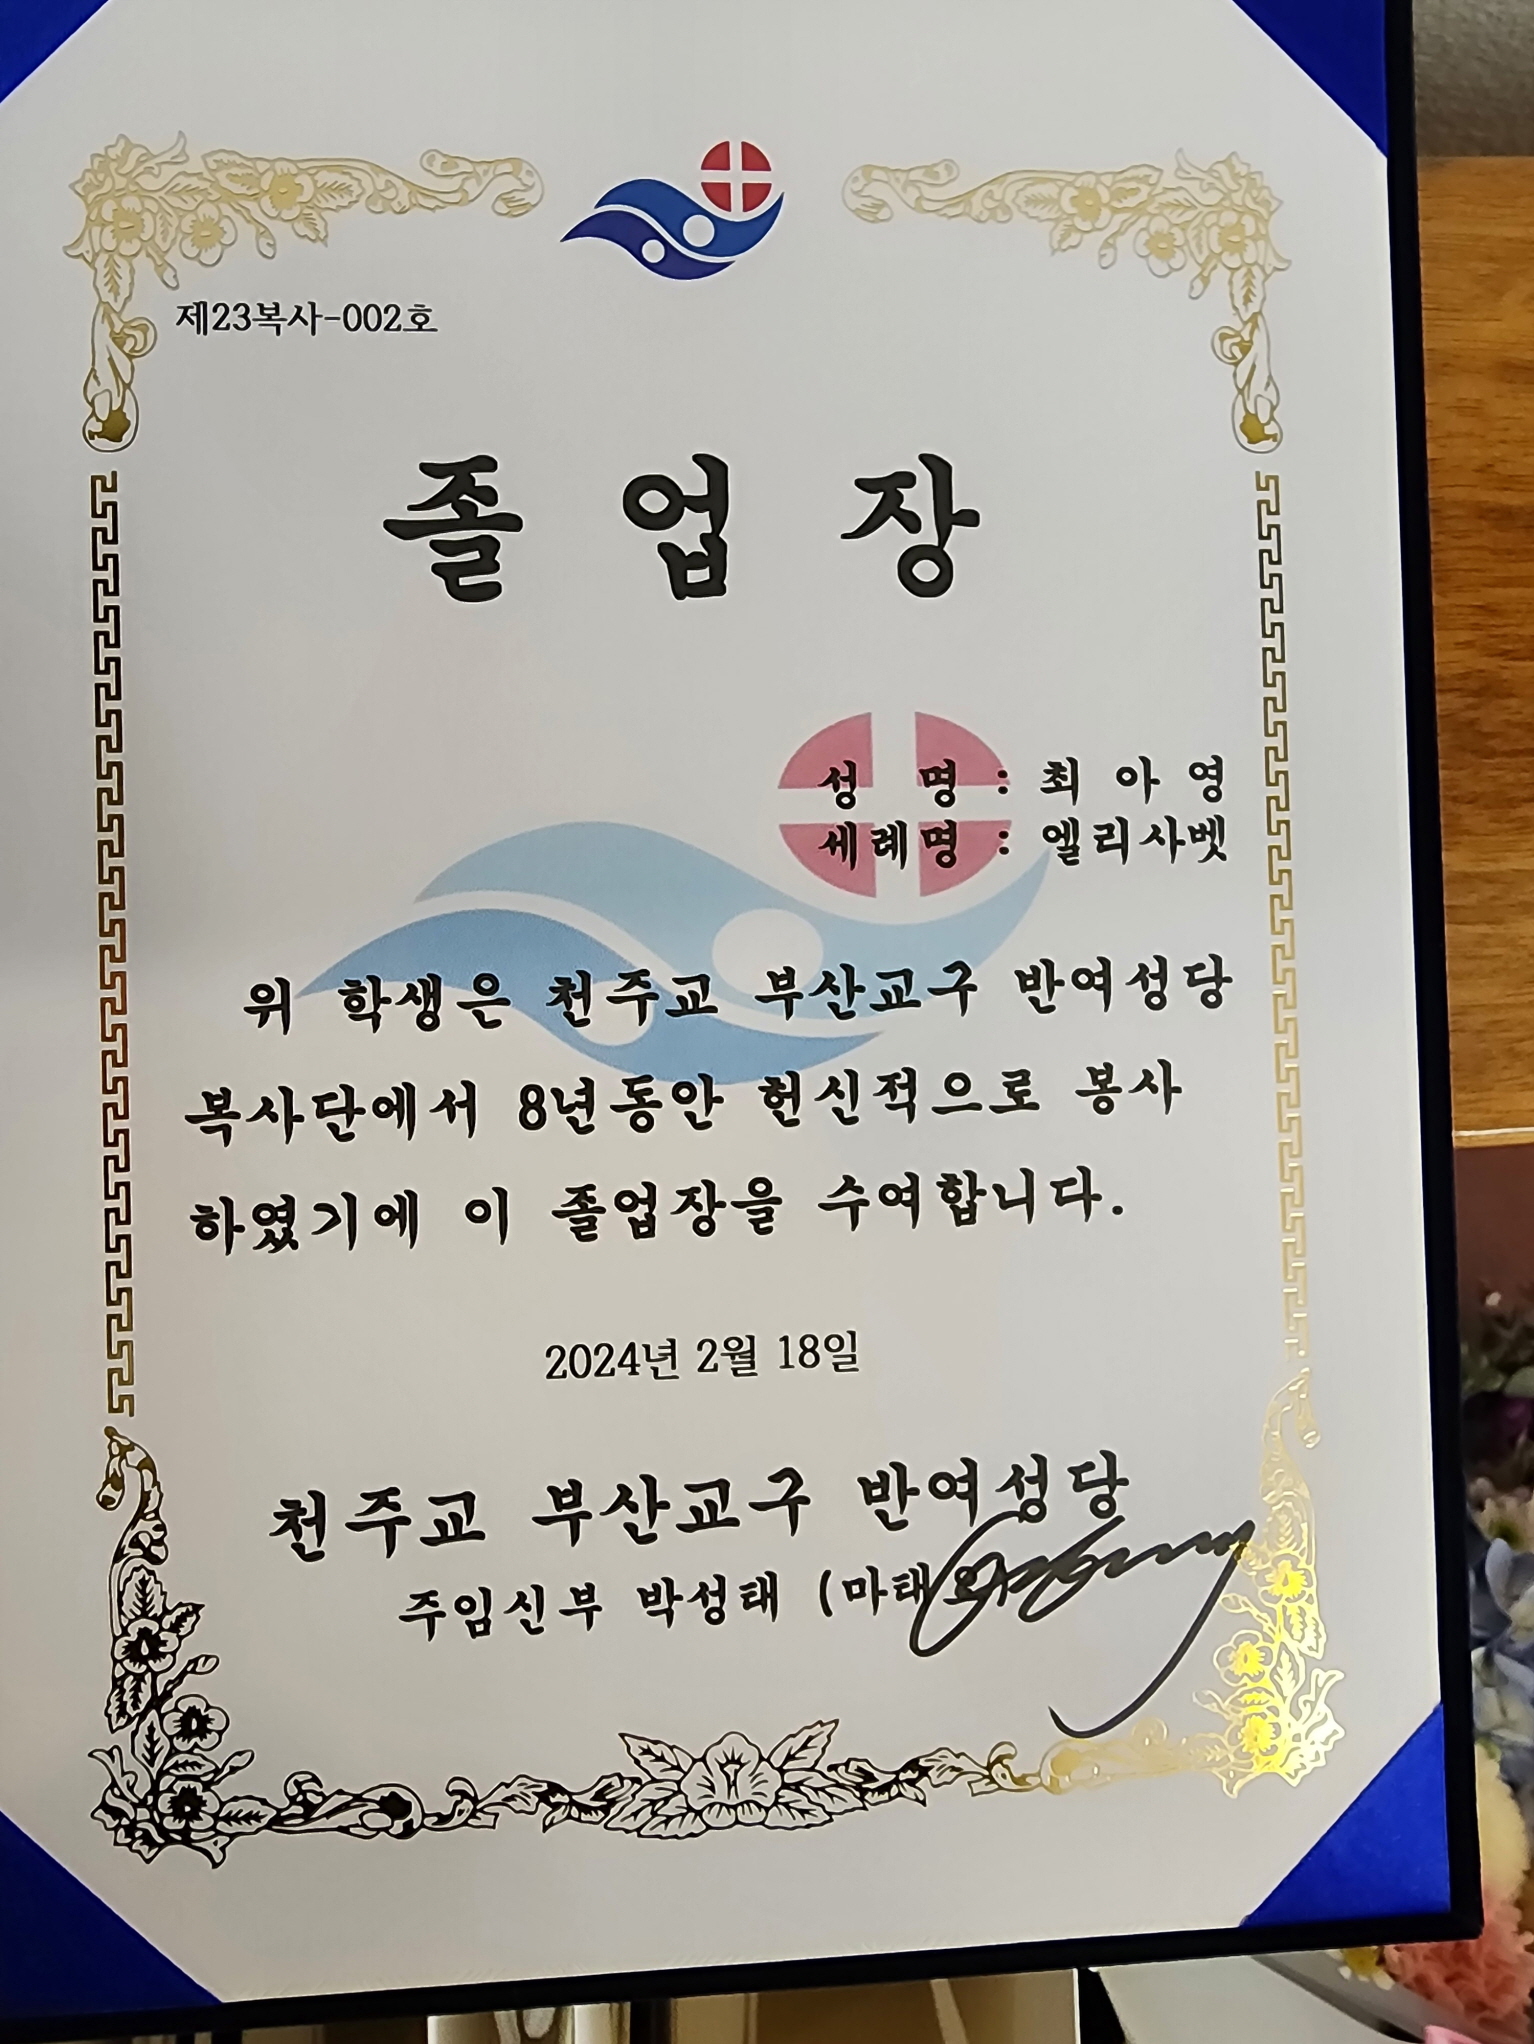 제23복사-002호
졸 업 장
성 명 : 최 아 영
세례명 : 엘리사벳
위 학생은 천주교 부산교구 반여성당
복사단에서 8년동안 헌신적으로 봉사
하였기에 이 졸업장을 수여합니다.
2024년 2월 18일
천주교 부산교구 반여성당
주임신부 박성태 (마태오)